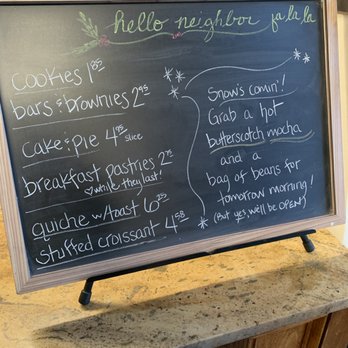 hello neighbor fa la la
cookies 1.85
bars & brownies 2.95
cake & pie 4.95 slice
breakfast pastries 2.75
while they last!
quiche w/toast 6.25
stuffed croissant 4.58
Snow's comin'!
Grab a hot
butterscotch mocha
and a
bag of beans for
tomorrow morning!
(But yes, we'll be OPEN!)